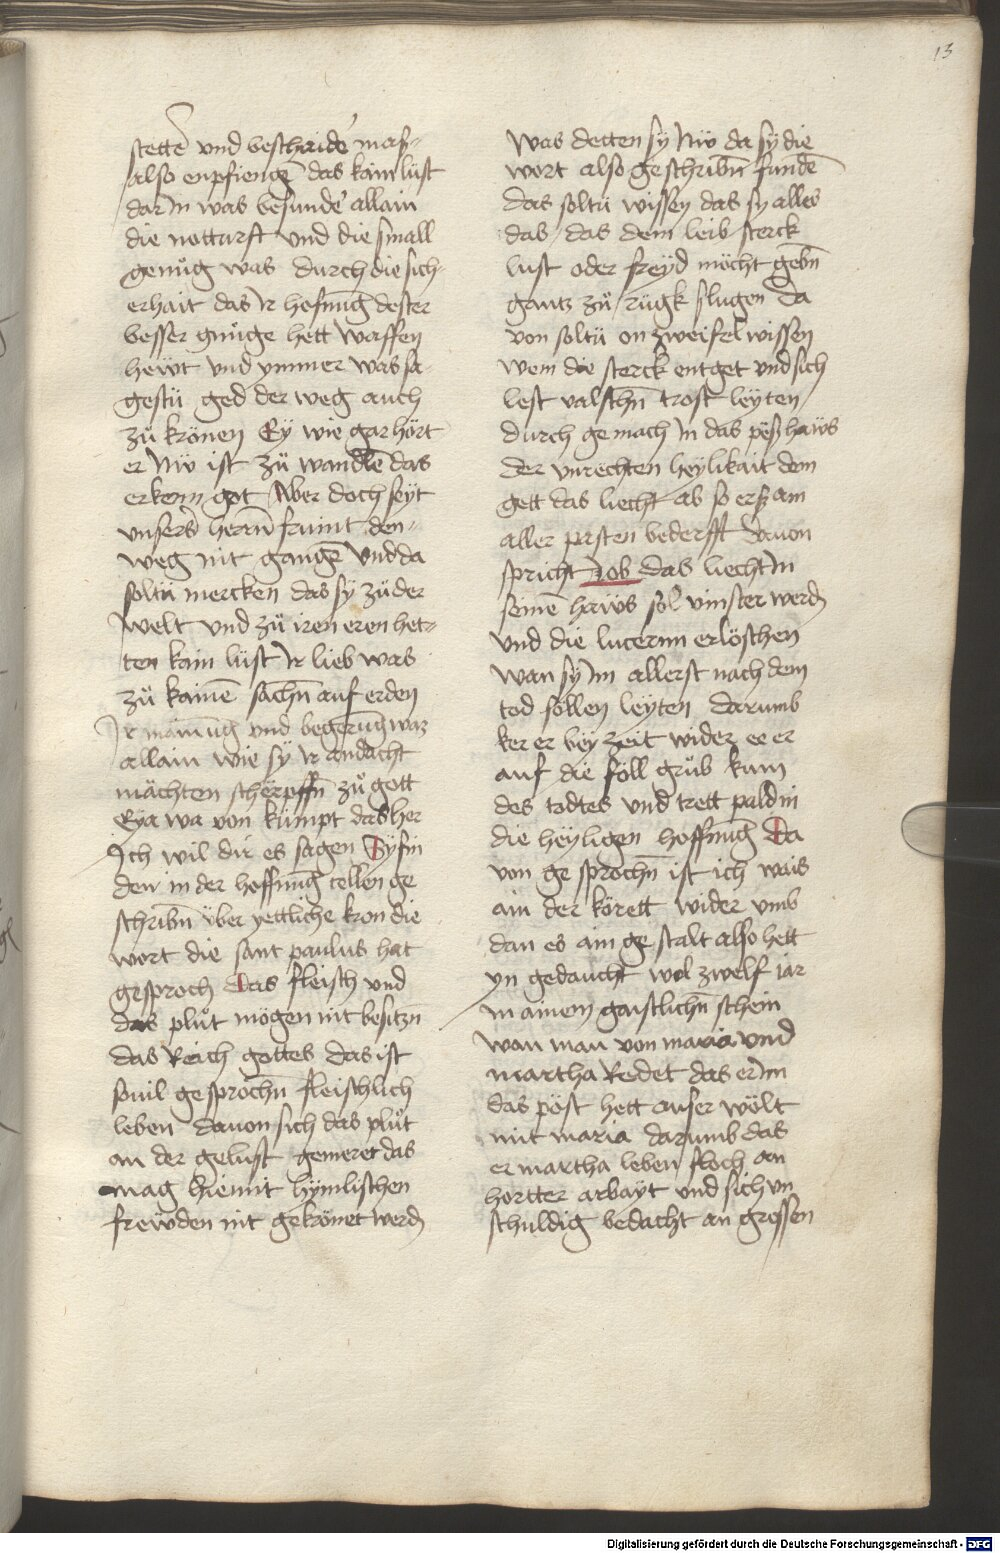 13
stettē vnd beschaidē mas-
also enpfiengē das kain lust
dar jn was besundē allain
die notturft vnd die small
genu̇g was durch die sich-
erhait das jr hofnūg dester
besser gnu̇ge hett waffen
hewt vnd ymmer was sa-
gestu ged der weg auch
zů krönen Ey wie gar hört
er Nw ist zů wandlē das
erkenn got Aber doch seyt
vnsers herrn̄ frunt den-
weg nit gangē vnd da
soltu mercken das sy zů der
welt vnd zů iren eren het-
ten kain lust jr lieb was
zů kainē sachn̄ auf erden
Jr mainūg vnd begerūg waz
allain wie sy jr andacht
mächten scherpffn̄ zů gott
Eya wa von kumpt das her
Ich wil dir es sagen Dy sin
den in der hoffnūg cellen ge
schribn̄ über yettliche kron die
wort die sant paulus hat
gesproch Das fleisch vnd
das plůt mögen nit besitzn̄
das Reich gottes das ist
souil gesprochn̄ fleischlich
leben dauon sich das plůt
an der gelust gemeret das
mag hiemit hymlischen
frewden nit gekönet werd
Was detten sy Nw da sy die
wort also geschribn̄ fundē
das soltu wissen das sy alles
das / das dem leib sterck
lust oder freyd möcht gebn̄
gantz zů rugk slugen Da
von soltu on zweifel wissen
wem die sterck entget vnd sich
lest valschn̄ trost leyten
durch gemach jn das pöß haws
der vnrechten heylikait dem
gett das liecht ab so ers am
aller pasten bederfft Dauon
spricht Job das liecht jn
seinē haws sol vinster werd
vnd die lucernn erlöschen
wan sy jm allerst nach dem
tod söllen leyten darumb
ker er bey zeit wider ee er
auf die föll grůb kum
des todtes vnd trett pald in
die heyligen hoffnūg Da
von ge sprochn̄ ist ich wais
ain der körett wider vmb
dan es ain ge stalt also hett
yn gedaucht wol zwelf iar
in ainem gaistlichn̄ schein
wan man von maria vnd
martha Redet das er jm
das pöst hett auser wölt
mit maria darumb das
er martha leben floch an
hortter arbayt vnd sich vn
schuldig bedacht an grossen
Digitalisierung gefördert durch die Deutsche Forschungsgemeinschaft - DFG